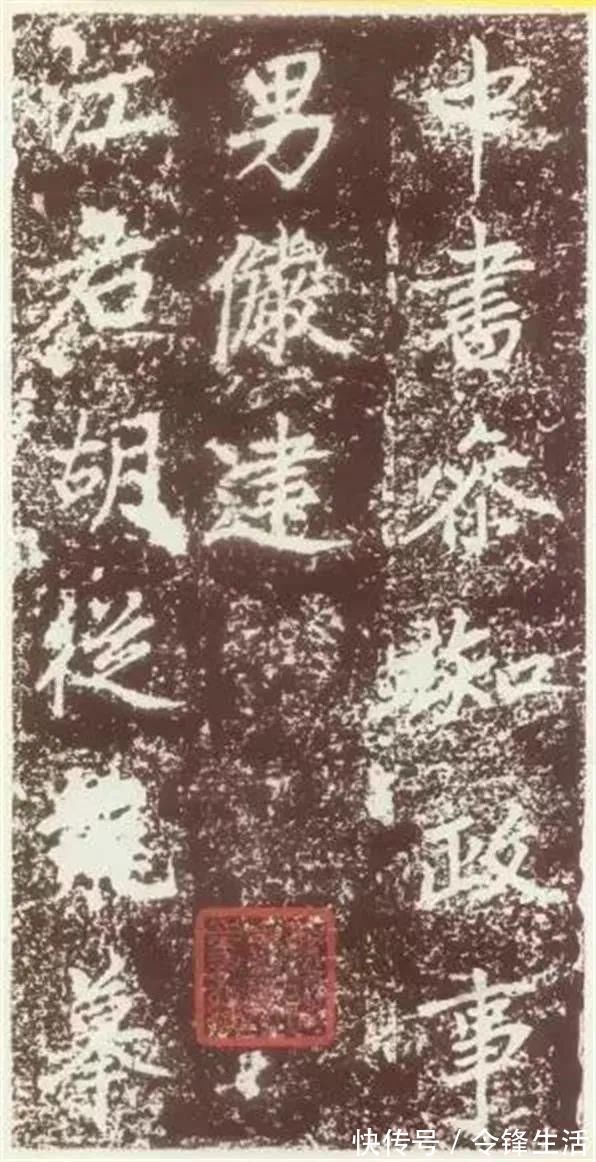 中書參知政事
男儼建
江君胡從龍摹
快传号 / 令锋生活